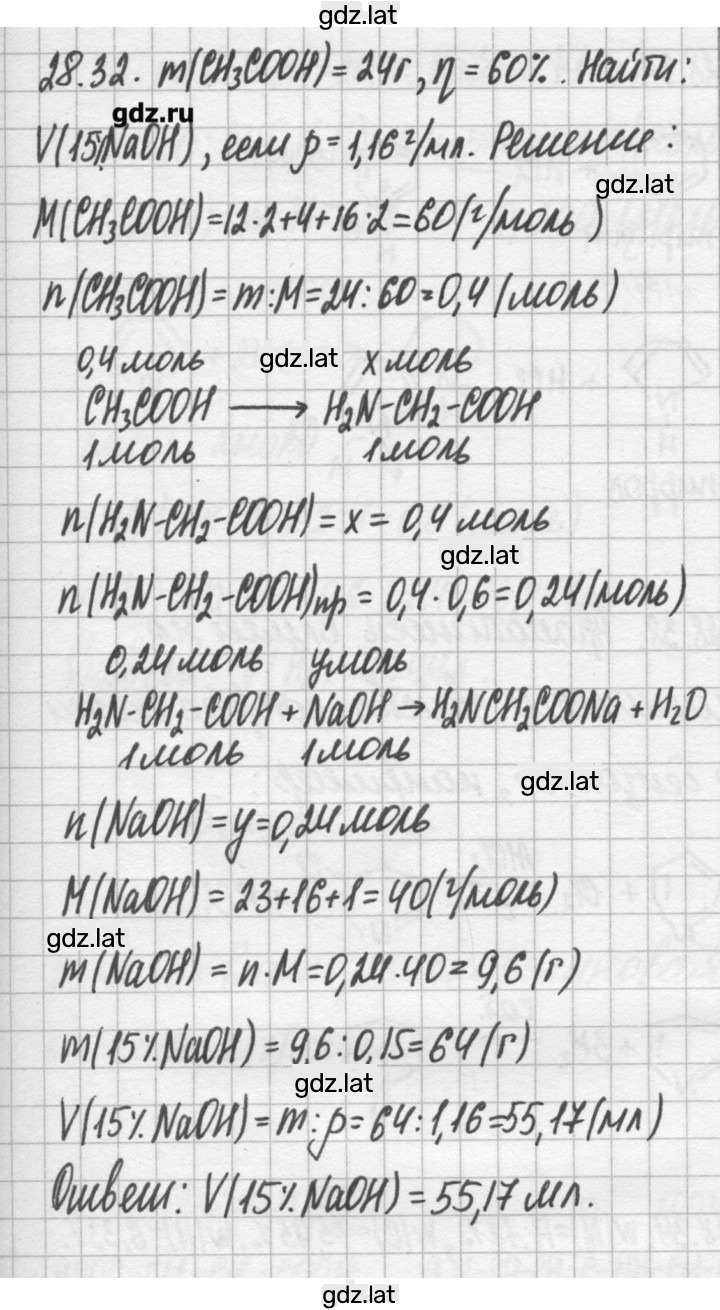 gdz.lat
28.32. m(CH₃COOH) = 24г, η = 60%. Найти:
gdz.ru
V(15%NaOH), если ρ = 1,16 г/мл. Решение:
gdz.lat
M(CH₃COOH) = 12·2+4+16·2 = 60(г/моль)
n(CH₃COOH) = m:M = 24:60 = 0,4 (моль)
0,4 моль gdz.lat x моль
CH₃COOH ⟶ H₂N-CH₂-COOH
1 моль 1 моль
n(H₂N-CH₂-COOH) = x = 0,4 моль
gdz.lat
n(H₂N-CH₂-COOH)пр = 0,4·0,6 = 0,24(моль)
0,24 моль y моль
H₂N-CH₂-COOH + NaOH → H₂NCH₂COONa + H₂O
1 моль 1 моль
gdz.lat
n(NaOH) = y = 0,24 моль
M(NaOH) = 23+16+1 = 40(г/моль)
gdz.lat
m(NaOH) = n·M = 0,24·40 = 9,6 (г)
m(15%NaOH) = 9.6:0,15 = 64(г)
gdz.lat
V(15%NaOH) = m:ρ = 64:1,16 = 55,17(мл)
Ответ: V(15%NaOH) = 55,17 мл.
gdz.lat